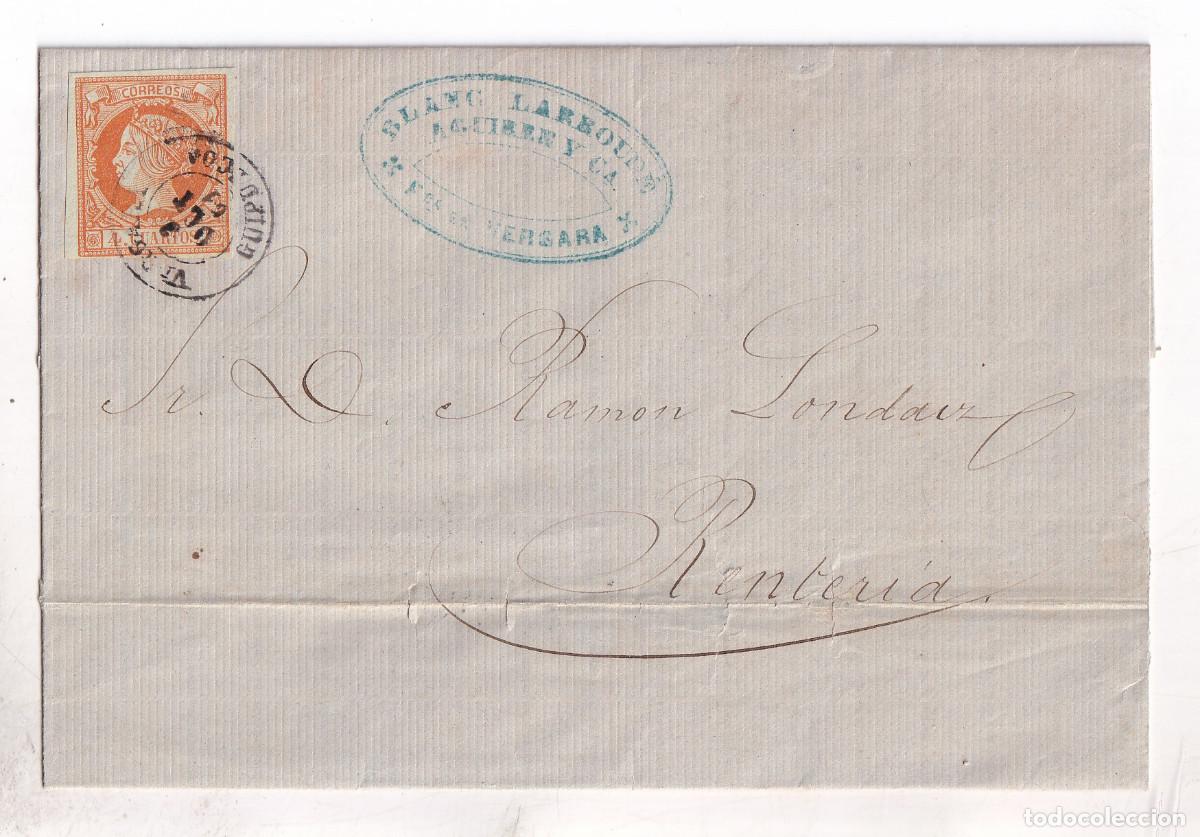 CORREOS
4 CUARTOS
GUIPUZCOA
OCT
BLANC LARROUDÉ
AGUIRRE Y CA.
VERGARA
Sr. D. Ramon Londaiz
Rentería.
todocoleccion